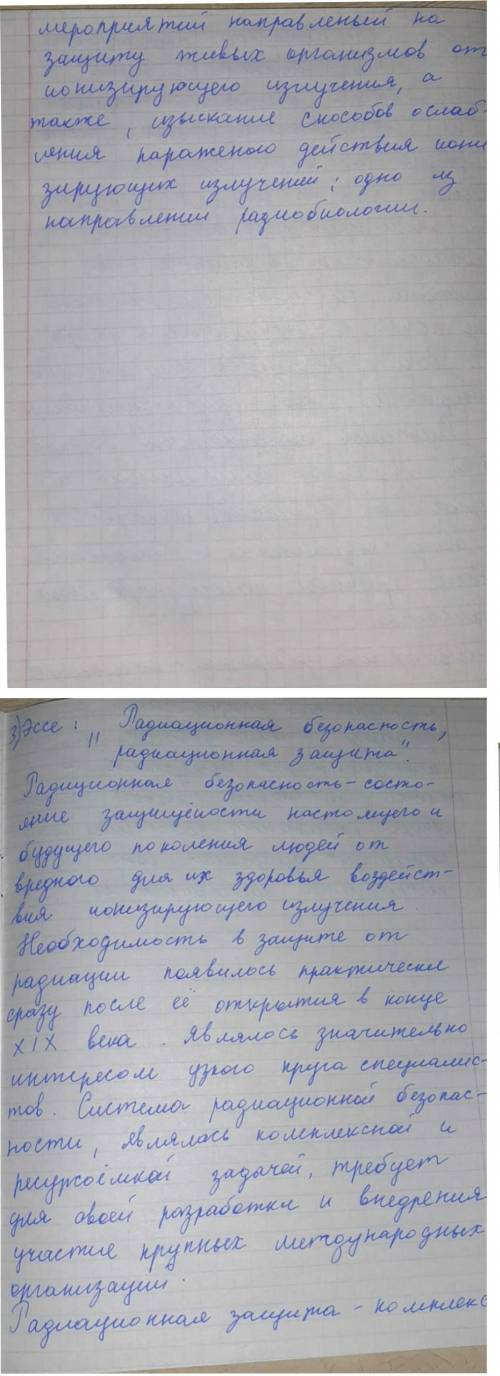 мероприятий направленый на
защиту живых организмов от
ионизирующего излучения, а
также, изыскание способов ослаб-
ления параженого действия иони
зирующих излучений; одно из
направлений радиобиологии.
3) Эссе: „Радиационная безопасность,
радиационная защита".
Радиционная безопасность-состо-
яние защищёности настоящего и
будущего поколения людей от
вредного для их здоровья воздейст-
вия ионизирующего излучения
Необходимость в защите от
радиации появилось практически
сразу после её открытия в конце
XIX века. Являлось значительно
интересом узкого круга специалис-
тов. Система радиационной безопас-
ности, являлась комплексной и
ресурсоёмкой задачей, требует
для своей разработки и внедрения
участие крупных международных
организаций.
Радиационная защита - комплекс